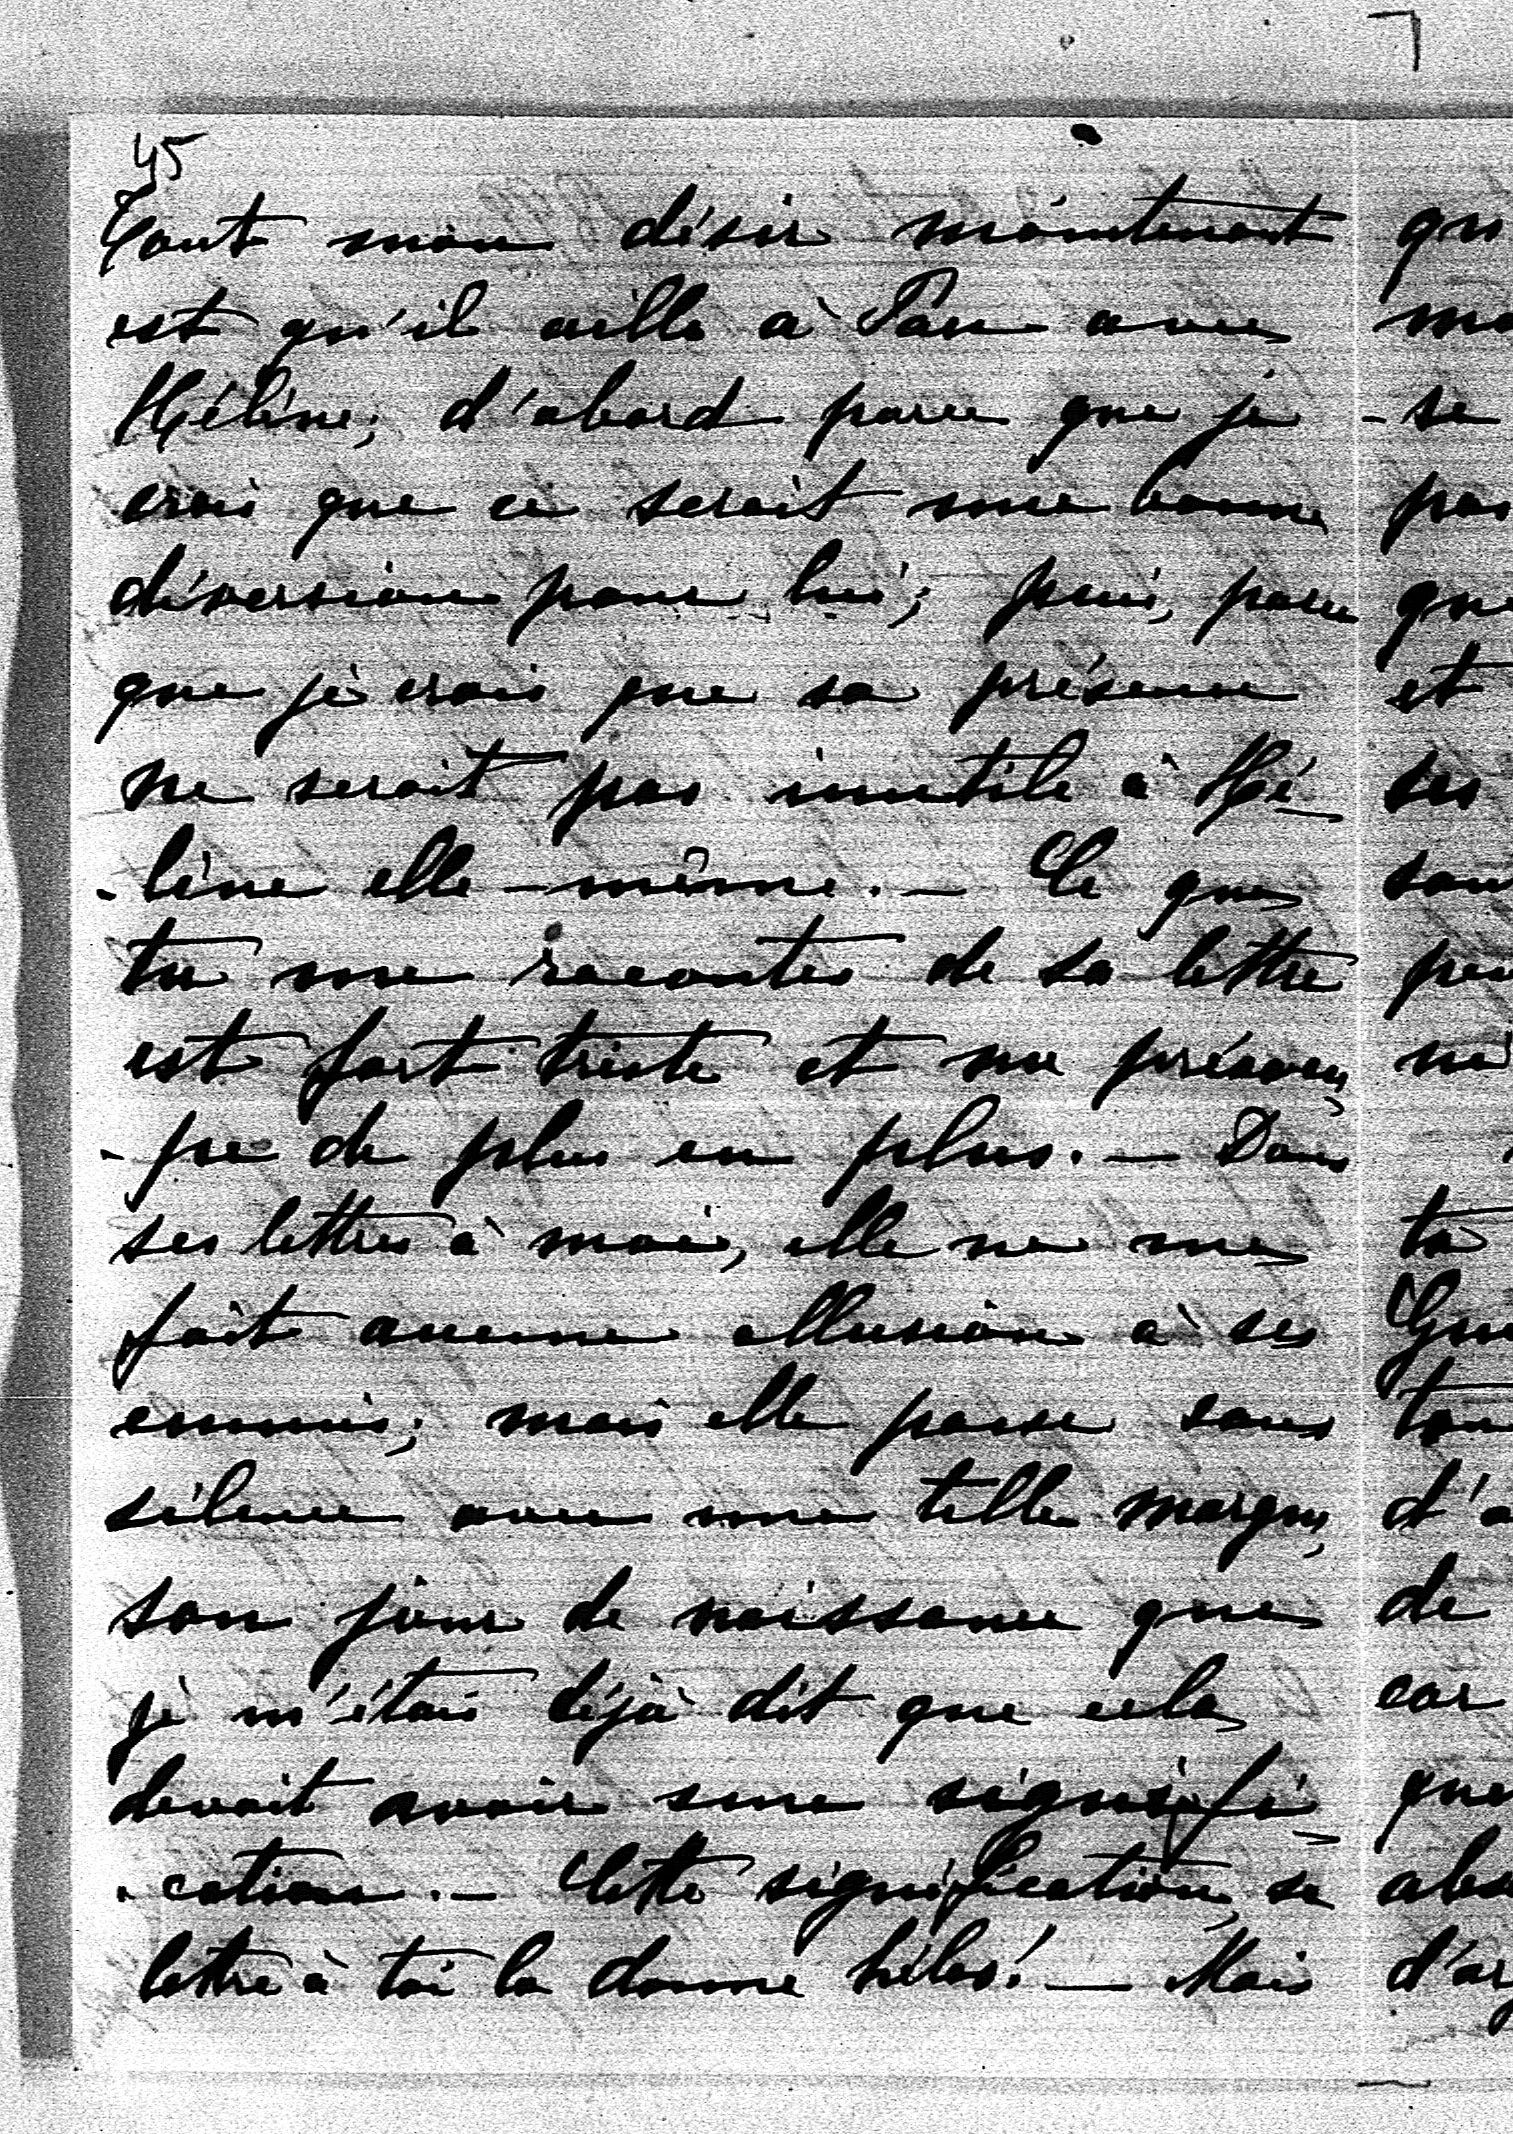 45
Tout mon désir maintenant
est qu'il aille à Pau avec
Hélène; d'abord parce que je
crois que ce serait une bonne
diversion pour lui; puis, parce
que je crois que sa présence
ne serait pas inutile à Hé-
-lène elle-même. — Ce que
tu me racontes de sa lettre
est fort triste et me préoccu-
-pe de plus en plus. — Dans
ses lettres à moi, elle ne me
fait aucune allusion à ses
ennuis; mais elle passe sous
silence avec une telle marque,
son jour de naissance que
je m'étais déjà dit que cela
devait avoir une signifi-
-cation. — Cette signification, sa
lettre à toi la donne hélas! — Mais
se
et
ses
ta
de
car